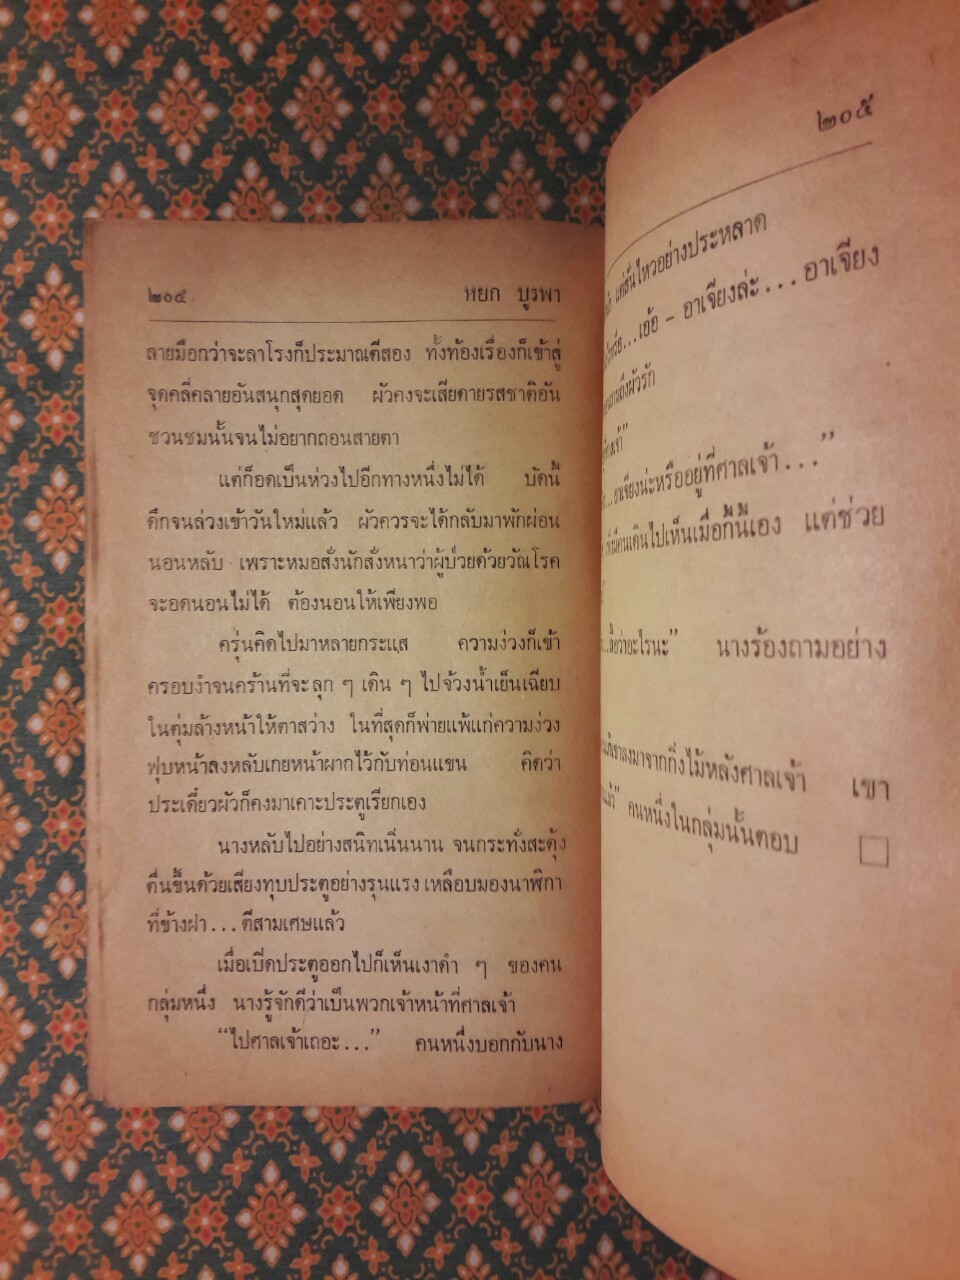 ๒๐๔ หยก บูรพา
ลายมือกว่าจะลาโรงก็ประมาณตีสอง ทั้งท้องเรื่องก็เข้าสู่
จุดคลี่คลายอันสนุกสุดยอด ผัวคงจะเสียดายรสชาติอัน
ชวนชมนั้นจนไม่อยากถอนสายตา
แต่ก็อดเป็นห่วงไปอีกทางหนึ่งไม่ได้ บัดนี้
ดึกจนล่วงเข้าวันใหม่แล้ว ผัวควรจะได้กลับมาพักผ่อน
นอนหลับ เพราะหมอสั่งนักสั่งหนาว่าผู้ป่วยด้วยวัณโรค
จะอดนอนไม่ได้ ต้องนอนให้เพียงพอ
ครุ่นคิดไปมาหลายกระแส ความง่วงก็เข้า
ครอบงำจนคร้านที่จะลุก ๆ เดิน ๆ ไปจ้วงน้ำเย็นเฉียบ
ในตุ่มล้างหน้าให้ตาสว่าง ในที่สุดก็พ่ายแพ้แก่ความง่วง
ฟุบหน้าลงหลับเกยหน้าผากไว้กับท่อนแขน คิดว่า
ประเดี๋ยวผัวก็คงมาเคาะประตูเรียกเอง
นางหลับไปอย่างสนิทเนิ่นนาน จนกระทั่งสะดุ้ง
ตื่นขึ้นด้วยเสียงทุบประตูอย่างรุนแรง เหลือบมองนาฬิกา
ที่ข้างฝา...ตีสามเศษแล้ว
เมื่อเปิดประตูออกไปก็เห็นเงาดำ ๆ ของคน
กลุ่มหนึ่ง นางรู้จักดีว่าเป็นพวกเจ้าหน้าที่ศาลเจ้า
“ไปศาลเจ้าเถอะ...” คนหนึ่งบอกกับนาง
๒๐๕
แต่สั่นไหวอย่างประหลาด
...เอ้อ – อาเจียงล่ะ...อาเจียง
ถึงผัวรัก
...อาเจียงน่ะหรืออยู่ที่ศาลเจ้า...”
มีคนเดินไปเห็นเมื่อกี้นี้เอง แต่ช่วย
ว่าอะไรนะ” นางร้องถามอย่าง
เขาลงมาจากกิ่งไม้หลังศาลเจ้า เขา
แล้ว” คนหนึ่งในกลุ่มนั้นตอบ